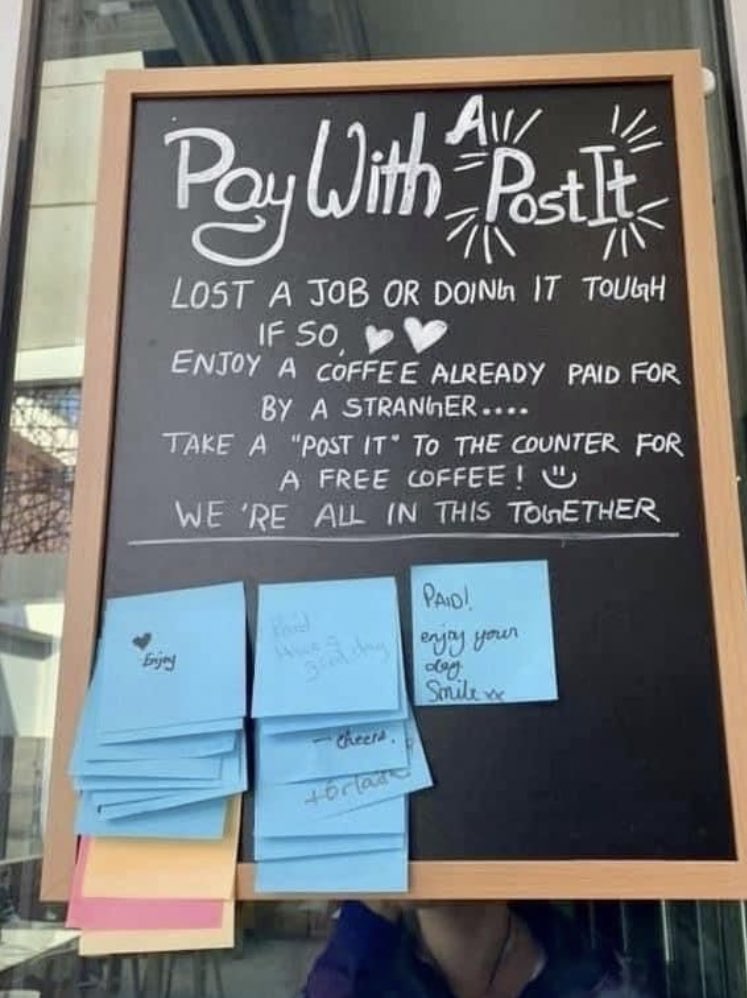 Pay With A Post It
LOST A JOB OR DOING IT TOUGH
IF SO,
ENJOY A COFFEE ALREADY PAID FOR
BY A STRANGER....
TAKE A "POST IT" TO THE COUNTER FOR
A FREE COFFEE!
WE'RE ALL IN THIS TOGETHER
Enjoy
Paid
Have a
good day
- cheers.
PAID!
enjoy your
day
Smile xx